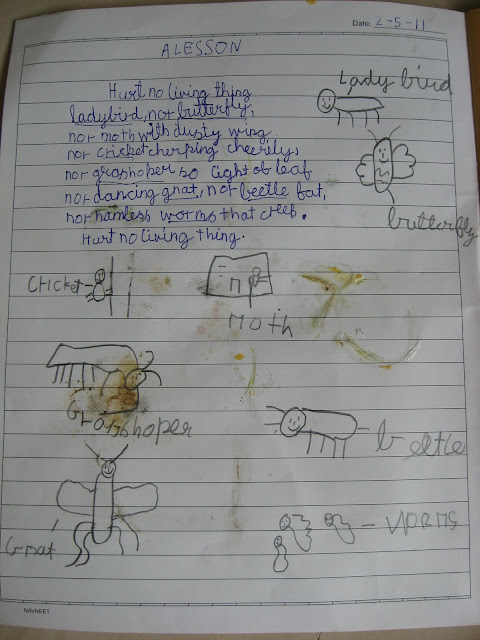 Date: 2-5-11
A LESSON
Hurt no living thing
ladybird, nor butterfly,
nor moth with dusty wing
nor cricket cherping cheerily,
nor grashoper so light of leaf
nor dancing gnat, nor beetle fat,
nor hamless worms that creep.
Hurt no living thing.
Lady bird
butterfly
Cricket
moth
Grasshoper
beetle
Gnat
worms
NAVNEET